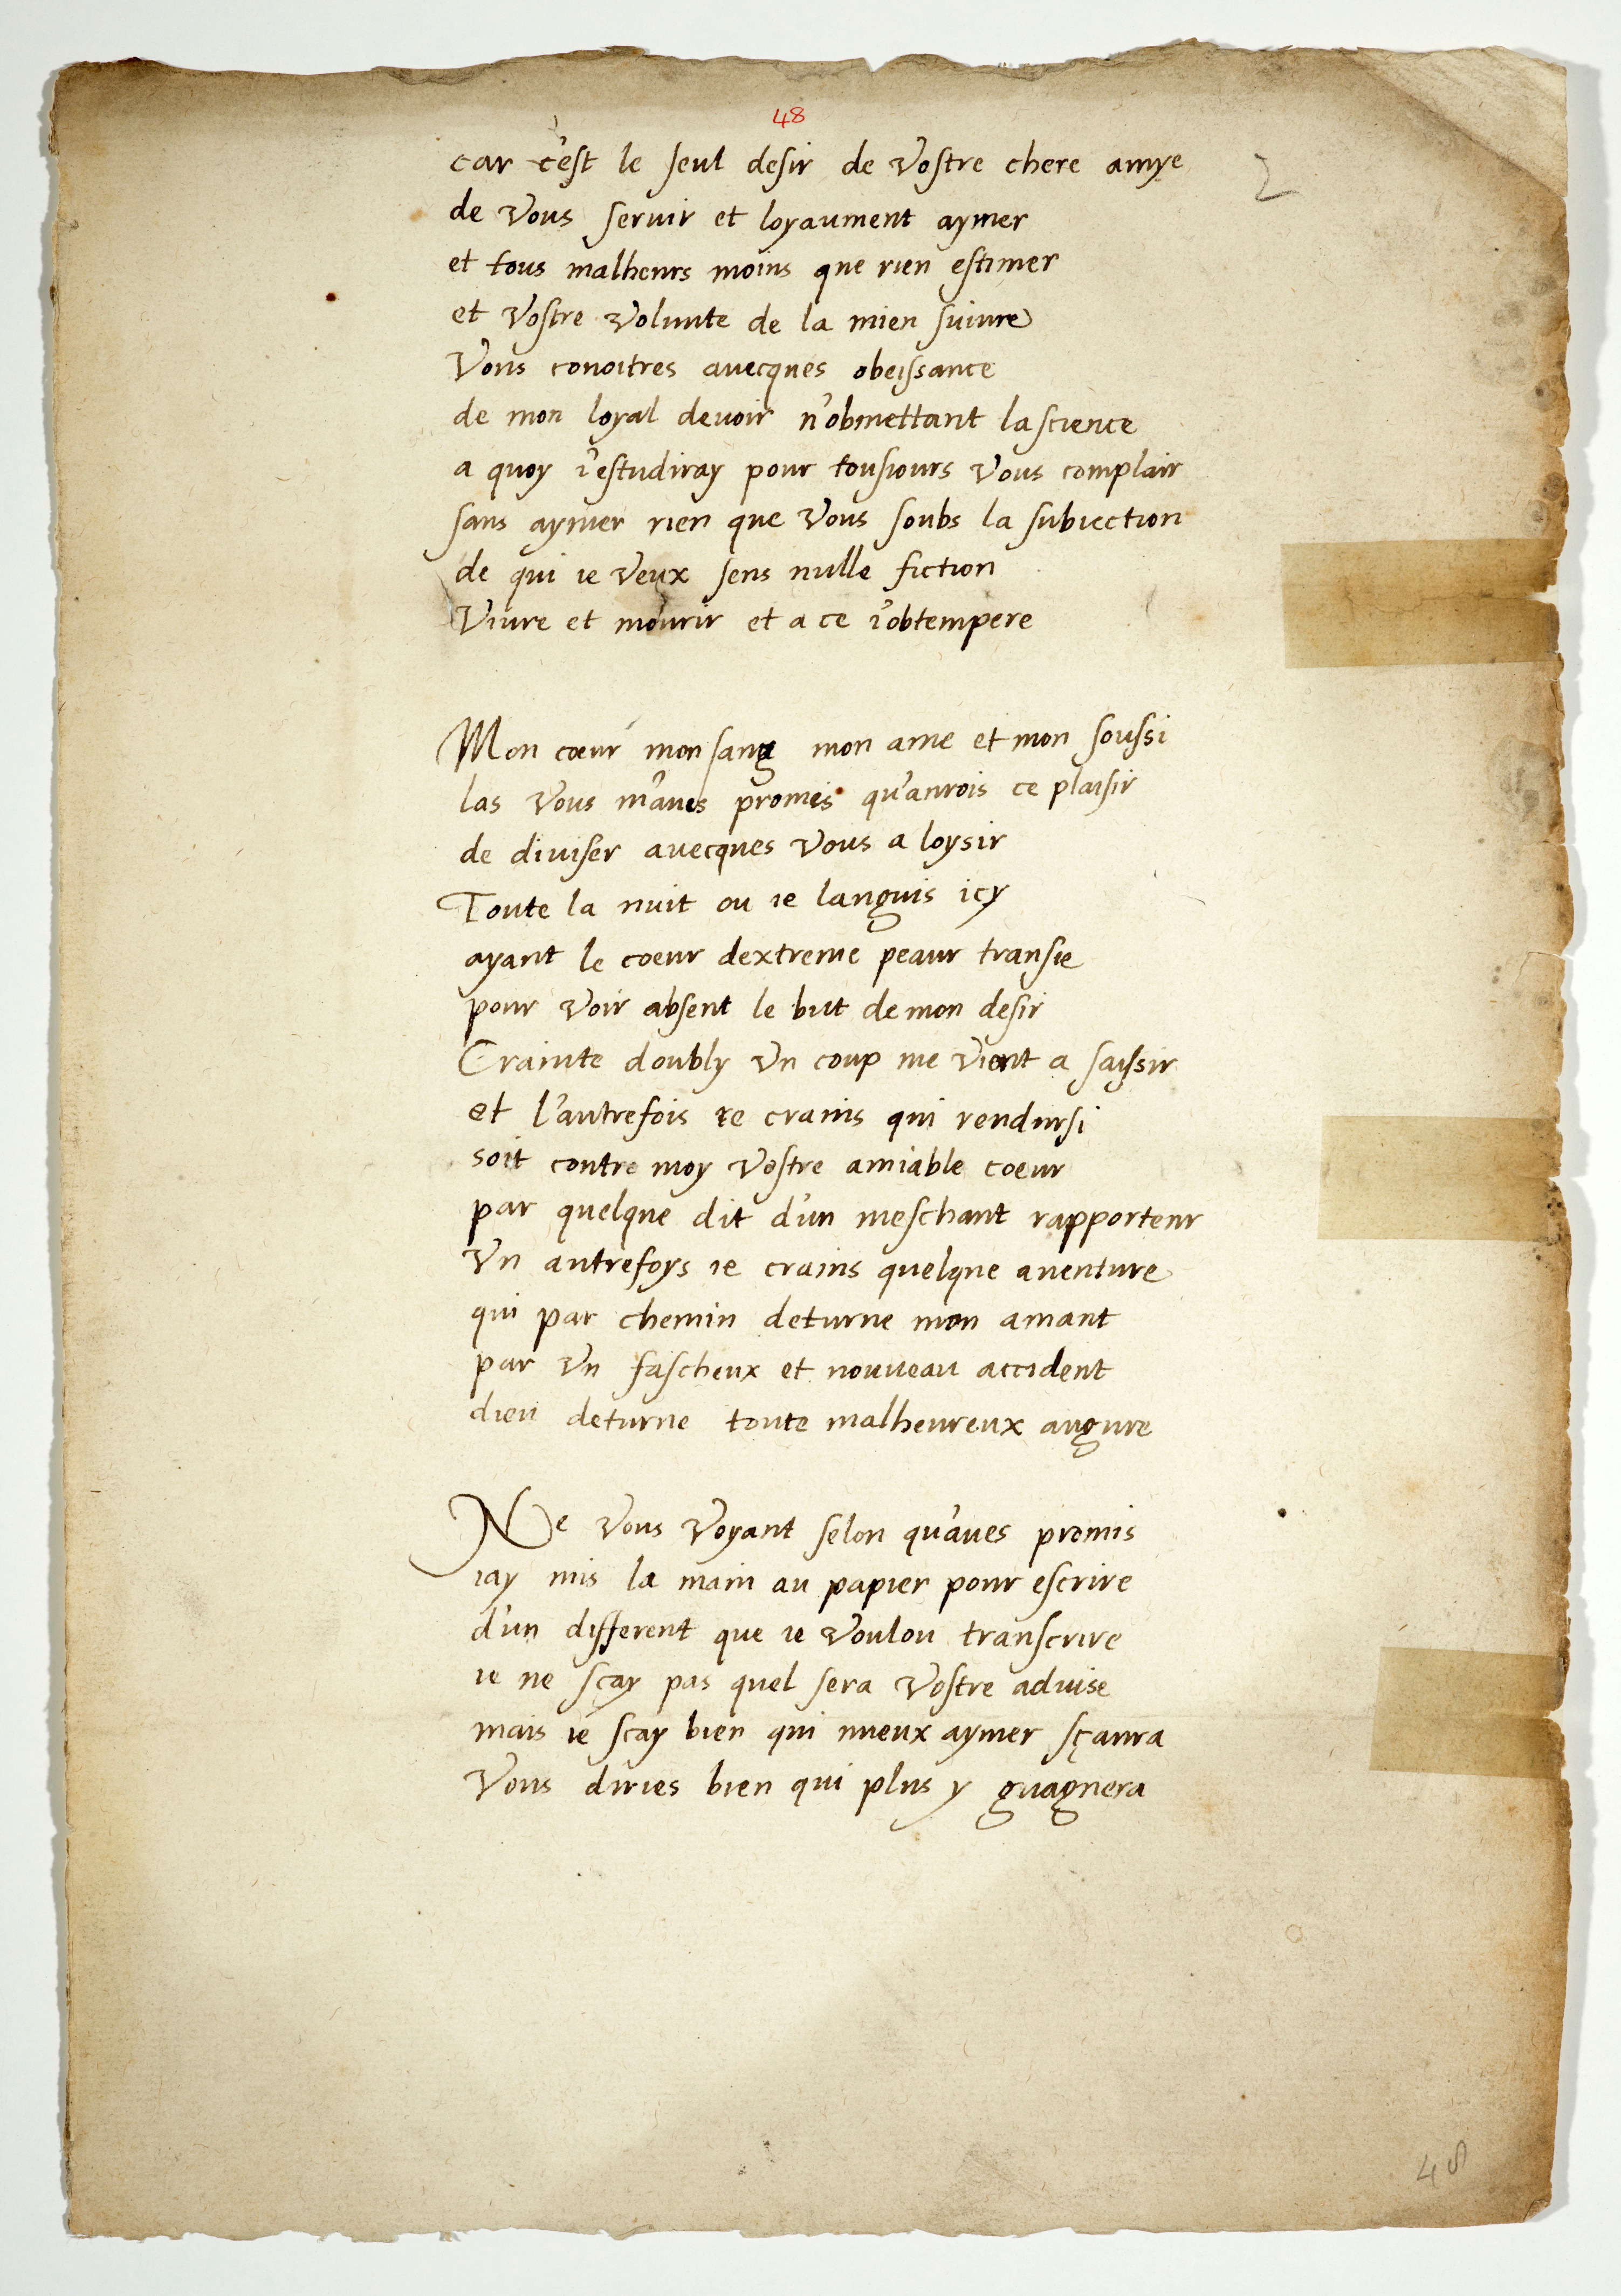 48
car c'est le seul desir de Vostre chere amye
2
de Vous seruir et loyaument aymer
et tous malheurs moins que rien estimer
et Vostre Volunte de la mien suiure
Vous conoitres auecques obeissance
de mon loyal deuoir n'obmettant lascience
a quoy i'estudiray pour tousiours Vous complair
sans aymer rien que Vous soubs la subiection
de qui ie Veux sens nulle fiction
Viure et mourir et a ce i'obtempere
Mon cœur mon sang mon ame et mon soussi
las Vous m'aues promes qu'aurois ce plaisir
de diuiser auecques Vous a loysir
Toute la nuit ou ie languis icy
ayant le coeur dextreme peaur transie
pour Voir absent le but de mon desir
Crainte doubly Vn coup me Vient a saissir
et l'autrefois ie crains qui rendursi
soit contre moy Vostre amiable coeur
par quelque dit d'un meschant rapporteur
Vn autrefoys ie crains quelque auenture
qui par chemin deturne mon amant
par Vn fascheux et nouueau accident
dieu deturne toute malheureux augure
Ne Vous Voyant selon qu'aues promis
iay mis la main au papier pour escrire
d'un different que ie Voulou transcrire
ie ne sçay pas quel sera Vostre aduise
mais ie scay bien qui mieux aymer sçaura
Vous diries bien qui plus y guagnera
48